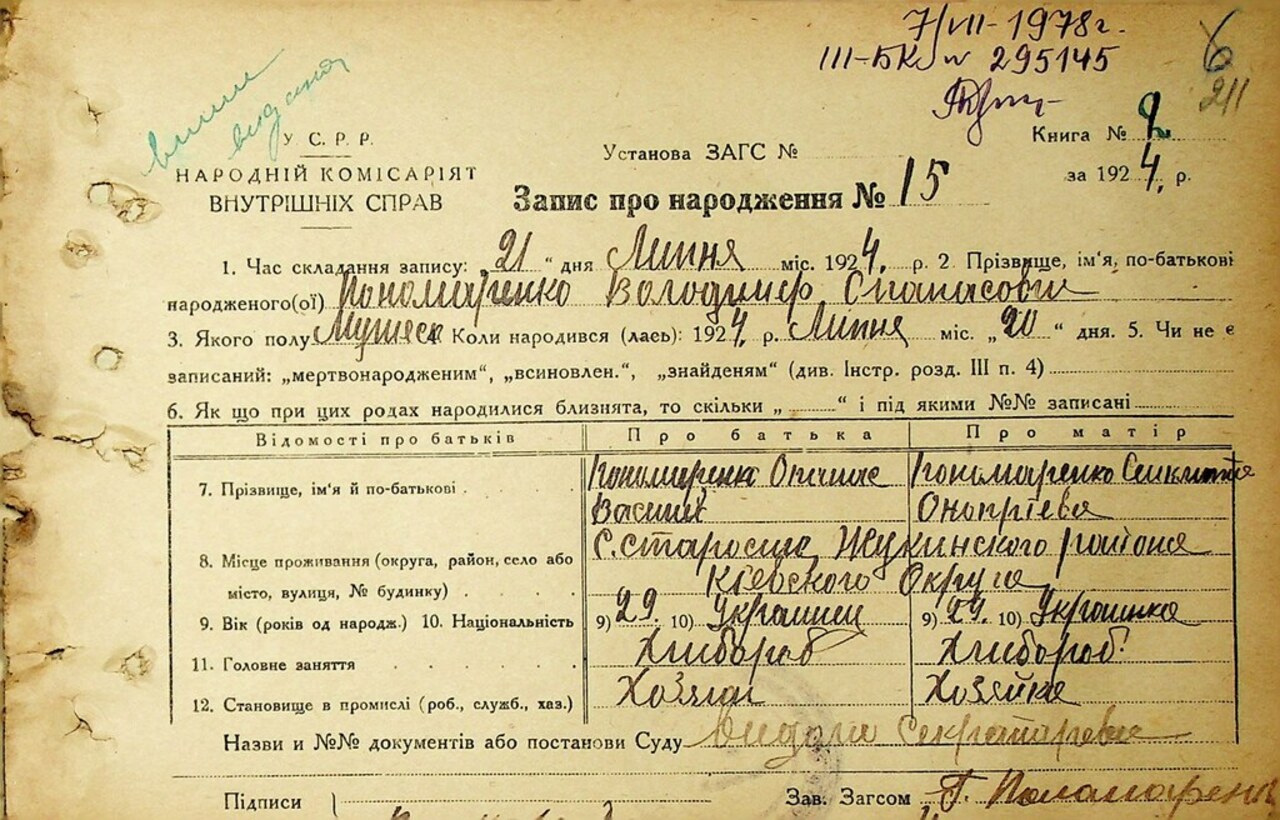 7/VII-1978г.
III-БК № 295145
6
211
выше
видана
У.С.Р.Р.
НАРОДНІЙ КОМІСАРІЯТ
ВНУТРІШНІХ СПРАВ
Установа ЗАГС №
Книга № 2
за 1924 р.
Запис про народження № 15
1. Час складання запису: 21 " дня Липня міс. 1924 р. 2 Прізвище, ім'я, по-батькові
народженого(ої) Пономаренко Володимір Опанасовіч
3. Якого полу Мужеск 4 Коли народився (лась): 1924 р. Липня міс. „20" дня. 5. Чи не є
записаний: „мертвонародженим", „всиновлен.", „знайденям" (див. Інстр. розд. III п. 4)
6. Як що при цих родах народилися близнята, то скільки „ " і під якими №№ записані
Відомості про батьків Про батька Про матір
7. Прізвище, ім'я й по-батькові Пономаренко Опанас Пономаренко
Василів Онопріевна
8. Місце проживання (округа, район, село або С. Старосілля Жукинского района
місто, вулиця, № будинку) Кіевского Округа
9. Вік (років од народж.) 10. Національність 9) 29. 10) Украинец 9) 29. 10) Украинка
11. Головне заняття Хлибороб Хлибороб
12. Становище в промислі (роб., служб., хаз.) Хозяин Хозяйка
Назви и №№ документів або постанови Суду
Підписи Зав. Загсом Г. Паламаренко